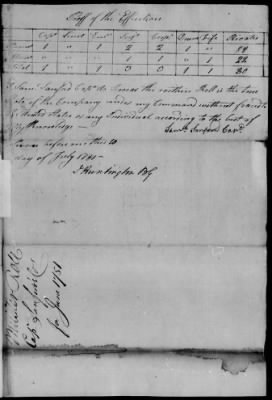 Proof of the Effectives
Capt Lieut Ens Serjt Corpl Drum Fife Privates
1 " 1 2 2 1 " 58
" " " " 1 " 1 22
Total 1 " 1 2 3 1 1 80
I Saml Sanford Capt do Swear the within Roll is the true
State of the Company under my Command without fraud to
United States or any Individual according to the best of
My knowledge —
Saml Sanford Capt
Sworn before me this 10
day of July 1781 —
J Huntington BG
Muster Roll
Capt Sanfords
for June 1781